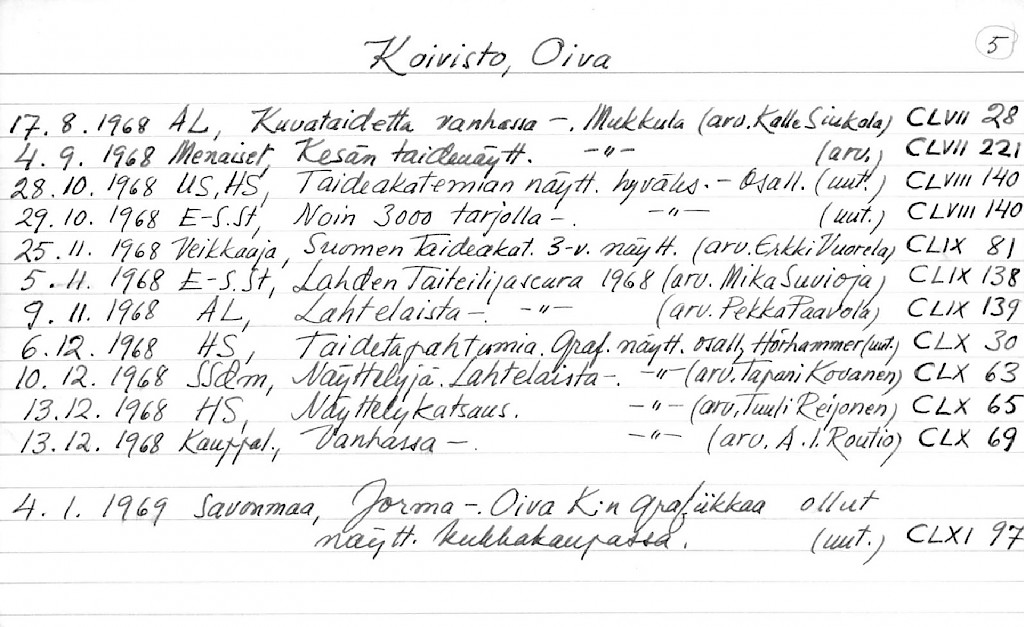 5
Koivisto, Oiva
17. 8. 1968 AL, Kuvataidetta vanhassa –. Mukkula (arv. Kalle Siukola) CLVII 28
4. 9. 1968 Menaiset, Kesän taidenäytt. –"– (arv.) CLVII 221
28. 10. 1968 US, HS, Taideakatemian näytt. hyväks. – Osall. (uut.) CLVIII 140
29. 10. 1968 E-S.St, Noin 3000 tarjolla – –"– (uut.) CLVIII 140
25. 11. 1968 Veikkaaja, Suomen Taideakat. 3-v. näytt. (arv. Erkki Vuorela) CLIX 81
5. 11. 1968 E-S.St, Lahden Taiteilijaseura 1968 (arv. Mika Suvioja) CLIX 138
9. 11. 1968 AL, Lahtelaista –. –"– (arv. Pekka Paavola) CLIX 139
6. 12. 1968 HS, Taidetapahtumia. Graf. näytt. osall, Hörhammer (uut.) CLX 30
10. 12. 1968 SSdm, Näyttelyjä. Lahtelaista –. –"– (arv. Tapani Kovanen) CLX 63
13. 12. 1968 HS, Näyttelykatsaus. –"– (arv. Tuuli Reijonen) CLX 65
13. 12. 1968 Kauppal., Vanhassa – –"– (arv. A. I. Routio) CLX 69
4. 1. 1969 Savonmaa, Jorma –. Oiva K:n grafiikkaa ollut
näytt. kukkakaupassa. (uut.) CLXI 97